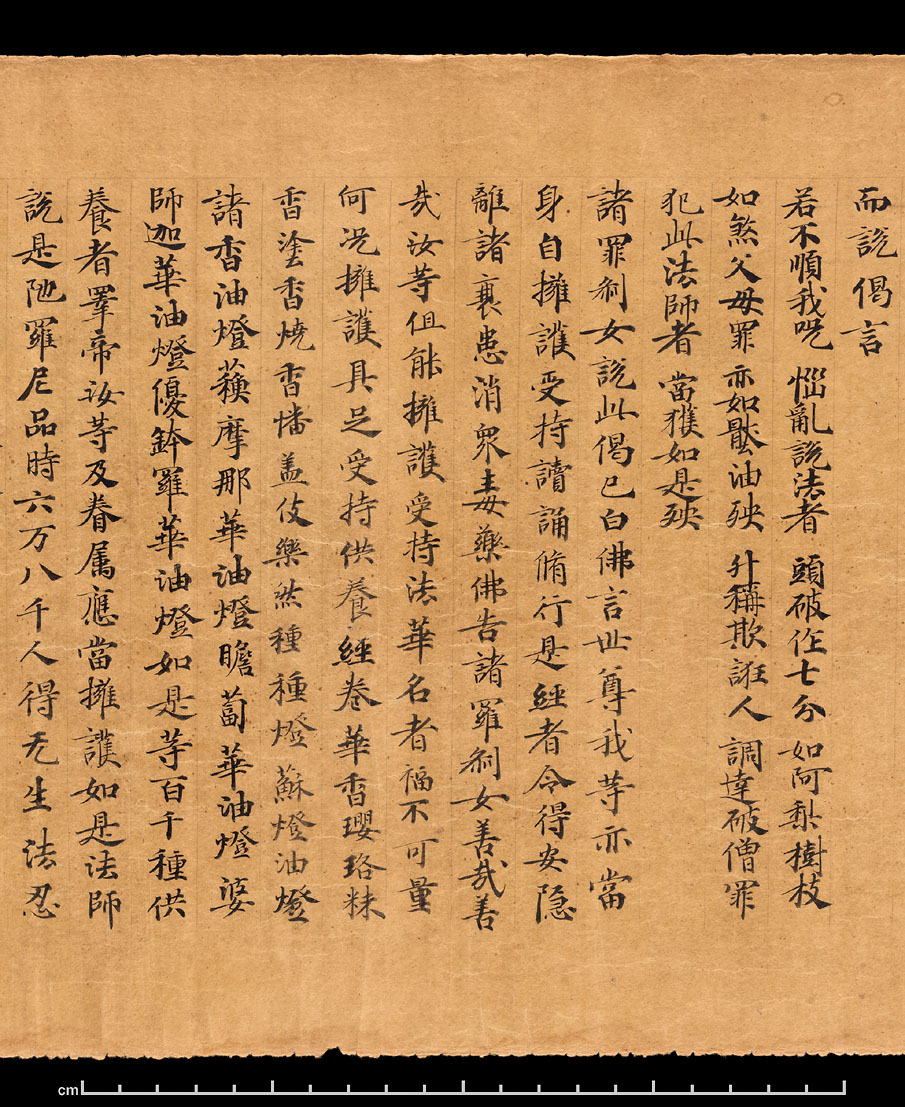 而說偈言
若不順我呪 惱亂說法者 頭破作七分 如阿梨樹枝
如煞父母罪 亦如壓油殃 升稱欺誑人 調達破僧罪
犯此法師者 當獲如是殃
諸羅刹女說此偈已白佛言世尊我等亦當
身自擁護受持讀誦脩行是經者令得安隱
離諸衰患消衆毒藥佛告諸羅刹女善哉善
哉汝等但能擁護受持法華名者福不可量
何況擁護具足受持供養經卷華香瓔珞粖
香塗香燒香幡盖伎樂然種種燈蘇燈油燈
諸香油燈蘇摩那華油燈瞻蔔華油燈婆
師迦華油燈優鉢羅華油燈如是等百千種供
養者睪帝汝等及眷属應當擁護如是法師
說是陁羅尼品時六万八千人得无生法忍
cm